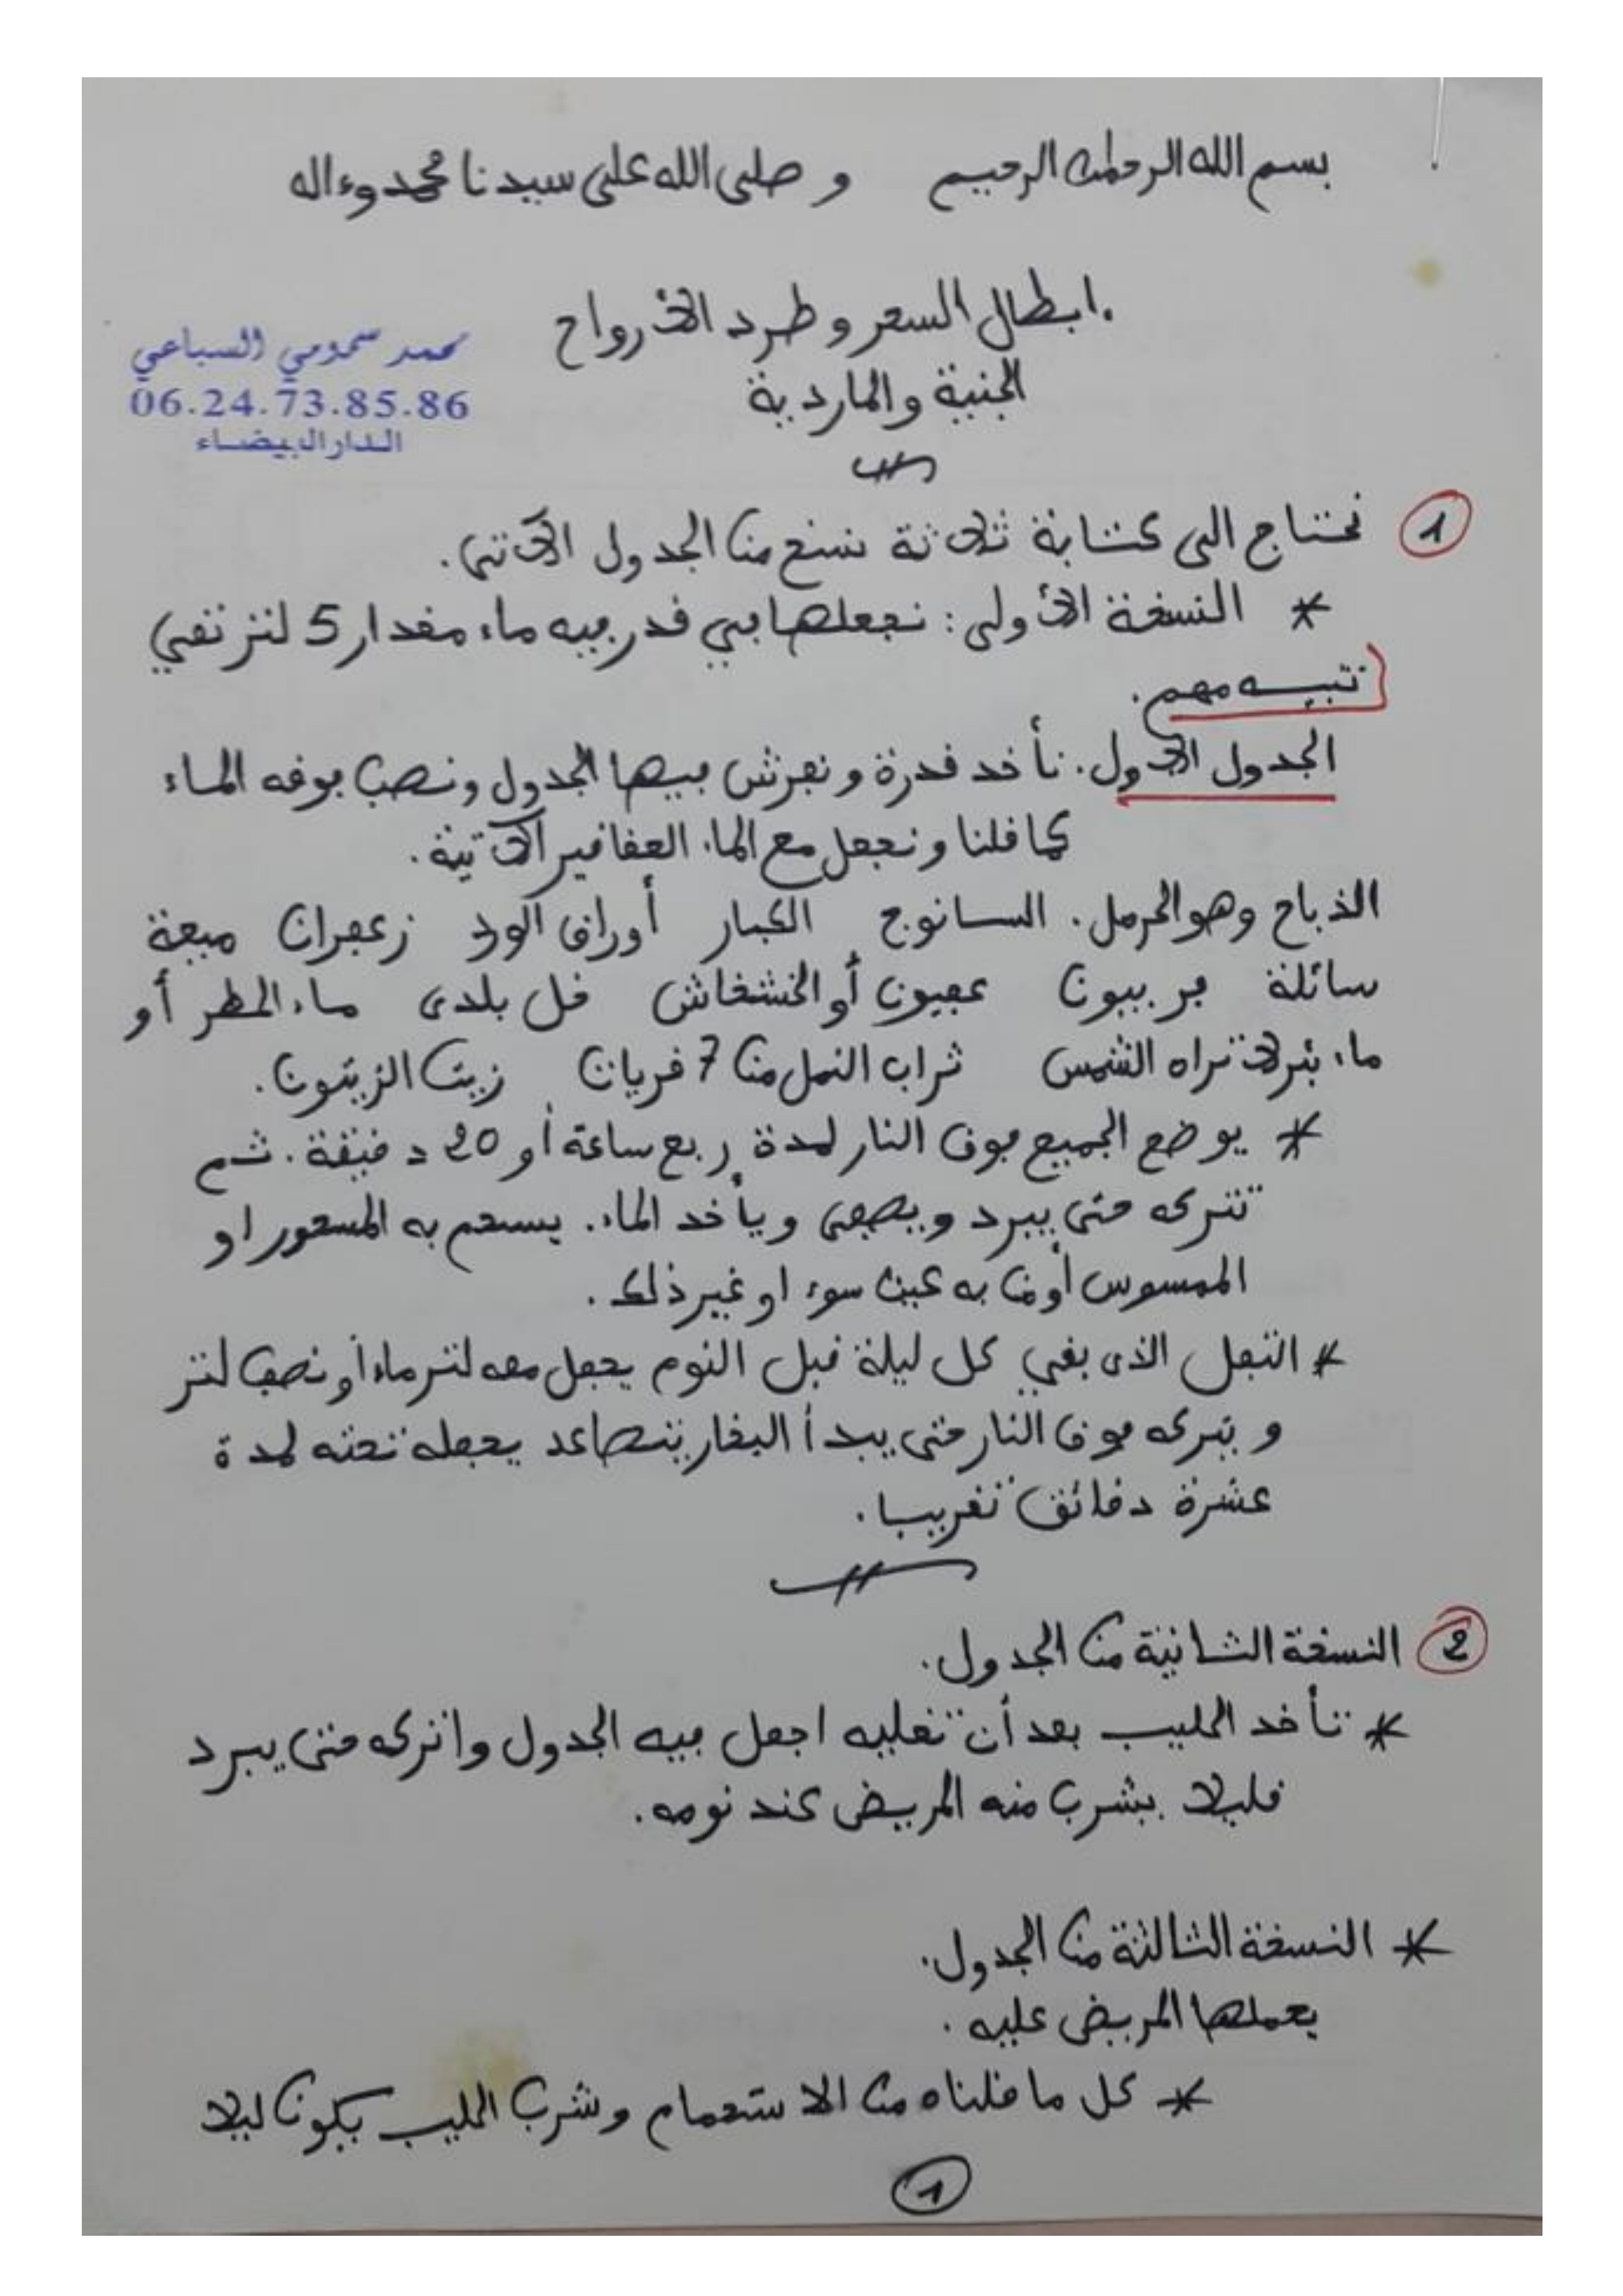 بسم الله الرحمان الرحيم وصلى الله على سيدنا محمد وءاله
.ابطال السحر وطرد الأرواح
الجنية والماردية
محمد سمومي السباعي
06.24.73.85.86
الدار البيضاء
1 نحتاج الى كتابة ثلاثة نسخ من الجدول الآتي.
* النسخة الأولى: نجعلها في قدر فيه ماء مقدار 5 لتر تقي
تنبيه مهم.
الجدول الأول. نأخد قدرة ونفرش فيها الجدول ونصب فوقه الماء
كما قلنا ونجعل مع الماء العقاقير الآتية.
الذباح وهو الحرمل. السانوج الكبار أوراق الورد زعفران ميعة
سائلة فربيون عفيون أو الخشخاش فل بلدى ماء المطر أو
ماء بئر لا تراه الشمس تراب النمل من 7 قريات زيت الزيتون.
* يوضع الجميع فوق النار لمدة ربع ساعة أو 20 دقيقة. ثم
تتركه حتى يبرد ويصفى ويأخد الماء. يستحم به المسحور او
الممسوس أو من به عين سوء او غير ذلك.
* الثفل الذى بقي كل ليلة قبل النوم يجعل معه لتر ماء أو نصف لتر
ويتركه فوق النار حتى يبدأ البخار يتصاعد يجعله تحته لمدة
عشرة دقائق تقريبا.
2 النسخة الثانية من الجدول.
* تأخد الحليب بعد أن تغليه اجعل فيه الجدول واتركه حتى يبرد
قليلا يشرب منه المريض عند نومه.
* النسخة الثالثة من الجدول.
يحملها المريض عليه.
* كل ما قلناه من الاستحمام وشرب الحليب يكون ليلا
1